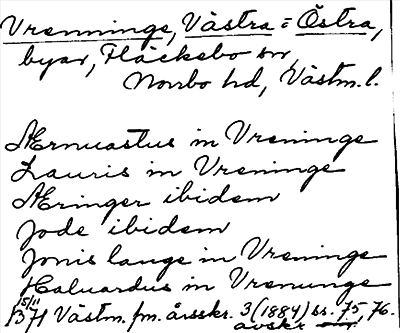 Vrenninge, Västra = Östra,
byar, Fläckebo sn,
Norrbo hd, Västm. l.
Ærnuastus in Vreninge
Lauris in Vreninge
Æringer ibidem
Jode ibidem
Jonis lange in Vreninge
Haluardus in Vrenunge
15/11
B 71 Västm. fm. årsskr. 3 (1884) ss. 75, 76.
avskr.